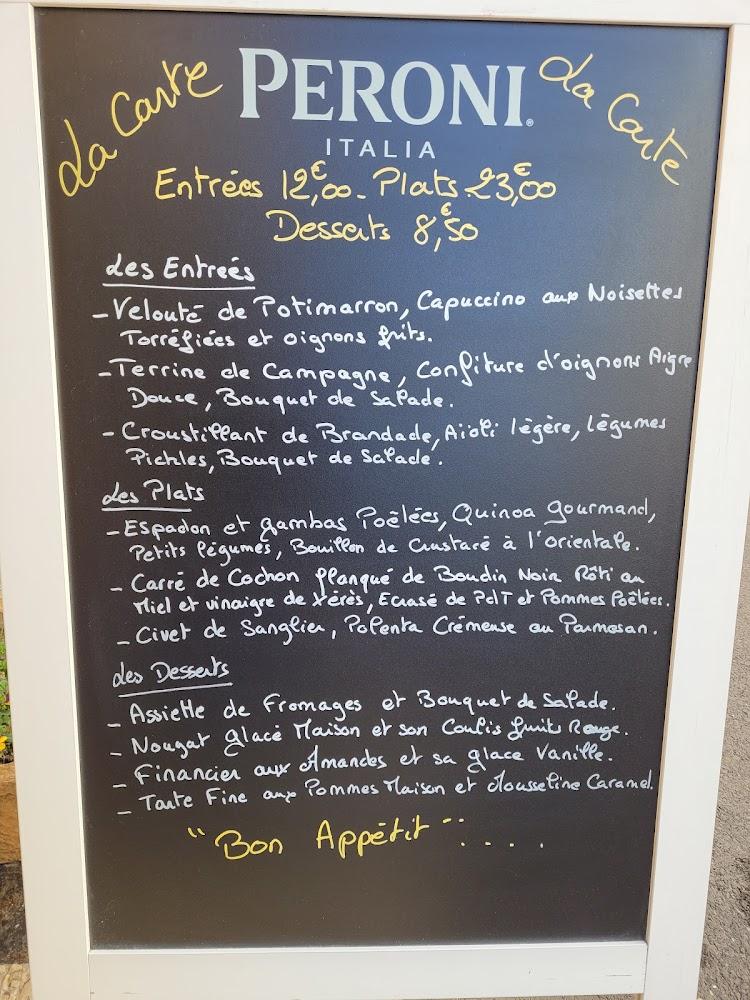 La Carte PERONI® La Carte
ITALIA
Entrées 12,€00 - Plats 23,€00
Desserts 8,€50
Les Entreés
- Velouté de Potimarron, Capuccino aux Noisettes
Torréfiées et oignons frits.
- Terrine de Campagne, Confiture d'oignons Aigre
Douce, Bouquet de Salade.
- Croustillant de Brandade, Aïoli légère, légumes
Pickles, Bouquet de Salade.
Les Plats
- Espadon et gambas Poêlées, Quinoa gourmand,
Petits légumes, Bouillon de Crustacé à l'orientale.
- Carré de Cochon flanqué de Boudin Noir Rôti au
Miel et vinaigre de Xérès, Ecrasé de PdT et Pommes Poêlées.
- Civet de Sanglier, Polenta Crémeuse au Parmesan.
Les Desserts
- Assiette de Fromages et Bouquet de Salade.
- Nougat glacé Maison et son Coulis fruits Rouge.
- Financier aux Amandes et sa glace Vanille.
- Tarte Fine aux Pommes Maison et Mousseline Caramel.
"Bon Appétit"....